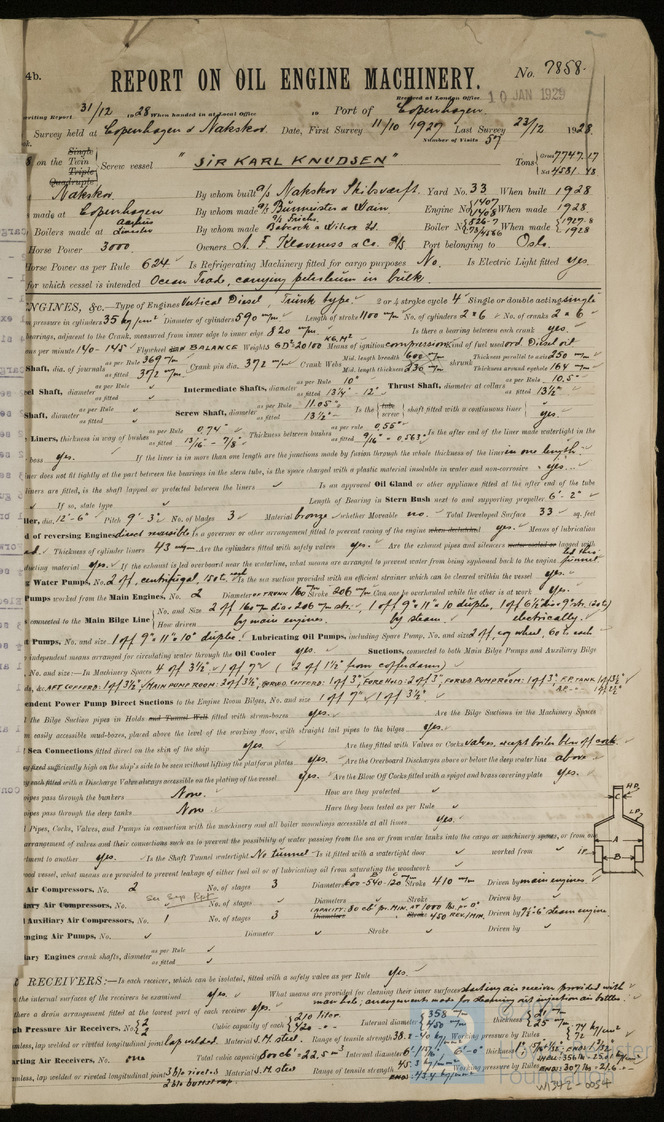 4b.
REPORT ON OIL ENGINE MACHINERY.
No. 7858.
Received at London Office
10 JAN 1929
writing Report 31/12 1928 When handed in at Local Office 19 Port of Copenhagen
Survey held at Copenhagen & Nakskov Date, First Survey 11/10 1927 Last Survey 23/12 1928
Number of Visits 57
on the Single Twin Triple Quadruple Screw vessel "SIR KARL KNUDSEN" Tons Gross 7747.17 Net 4581.48
Nakskov By whom built A/s Nakskov Skibsværft. Yard No. 33 When built 1928
made at Copenhagen By whom made A/s Burmeister & Wain Engine No. 1407 1408 When made 1928
Boilers made at By whom made Babcock & Wilcox Ld. Boiler No. When made 1927-8 1928
Horse Power 3000 Owners A. F. Klaveness & Co. A/s Port belonging to Oslo.
Horse Power as per Rule 624 Is Refrigerating Machinery fitted for cargo purposes No. Is Electric Light fitted yes.
for which vessel is intended Ocean Trade, carrying petroleum in bulk.
ENGINES, &c.—Type of Engines Vertical Diesel, Trunk type. 2 or 4 stroke cycle 4 Single or double acting single
pressure in cylinders 35 kg/cm² Diameter of cylinders 590 m/m. Length of stroke 1100 m/m No. of cylinders 2 x 6 No. of cranks 2 x 6
bearings, adjacent to the Crank, measured from inner edge to inner edge 820 m/m. Is there a bearing between each crank yes.
per minute 140-145 Flywheel BALANCE Weights GD²: 20100 KG.M² Means of ignition compression Kind of fuel used Diesel oil
Shaft, dia. of journals as per Rule 369 m/m as fitted 372 m/m Crank pin dia. 372 m/m Crank Webs Mid. length breadth 600 m/m Mid. length thickness 236 m/m shrunk Thickness parallel to axis 250 m/m Thickness around eyehole 164 m/m
Shaft, diameter as per Rule as fitted Intermediate Shafts, diameter as per Rule 10" as fitted 13 1/4" - 12" Thrust Shaft, diameter at collars as per Rule 10.5" as fitted 13 1/2"
Shaft, diameter as per Rule as fitted Screw Shaft, diameter as per Rule 11.05" as fitted 13 1/2" Is the tube screw shaft fitted with a continuous liner yes.
Liners, thickness in way of bushes as per Rule 0.74" as fitted 13/16" - 7/8" Thickness between bushes as per rule 0.55" as fitted 9/16" - 0.563" Is the after end of the liner made watertight in the
boss yes. If the liner is in more than one length are the junctions made by fusion through the whole thickness of the liner in one length.
liner does not fit tightly at the part between the bearings in the stern tube, is the space charged with a plastic material insoluble in water and non-corrosive yes.
liners are fitted, is the shaft lapped or protected between the liners Is an approved Oil Gland or other appliance fitted at the after end of the tube
If so, state type Length of Bearing in Stern Bush next to and supporting propeller 6'-2"
dia. 12'-6" Pitch 9'-3" No. of blades 3 Material bronze whether Moveable no. Total Developed Surface 33 sq. feet
of reversing Engines direct reversible Is a governor or other arrangement fitted to prevent racing of the engine when declutched yes. Means of lubrication
Thickness of cylinder liners 43 m/m Are the cylinders fitted with safety valves yes. Are the exhaust pipes and silencers lagged with
ducting material yes. If the exhaust is led overboard near the waterline, what means are arranged to prevent water from being syphoned back to the engine led thro funnel
Water Pumps, No. 2 off. centrifugal, 150 t. each Is the sea suction provided with an efficient strainer which can be cleared within the vessel yes.
Pumps worked from the Main Engines, No. 2 Diameter 160 m/m Stroke 206 m/m Can one be overhauled while the other is at work yes.
connected to the Main Bilge Line No. and Size 2 off 160 m/m dia x 206 m/m str. 1 off 9" x 11" x 10" duplex, 1 off 6 1/2" dia x 9" str.
How driven by main engines. by steam. electrically.
Pumps, No. and size 1 off 9" x 11" x 10" duplex. Lubricating Oil Pumps, including Spare Pump, No. and size 2 off, cog wheel, 60 t. each
independent means arranged for circulating water through the Oil Cooler yes. Suctions, connected to both Main Bilge Pumps and Auxiliary Bilge
No. and size:—In Machinery Spaces 4 off 3 1/2" 1 off 7" (2 off 1 1/2" from cofferdams)
AFT COFFERD: 1 of 3 1/2", MAIN PUMP ROOM: 2 of 3 1/2", FORWD COFFERD: 1 of 3", FORE HOLD 2 of 3", FORWD PUMP ROOM: 1 of 3"
Independent Power Pump Direct Suctions to the Engine Room Bilges, No. and size 1 off 7" 1 off 3 1/2"
the Bilge Suction pipes in Holds and Tunnel Well fitted with strum-boxes yes. Are the Bilge Suctions in the Machinery Spaces
easily accessible mud-boxes, placed above the level of the working floor, with straight tail pipes to the bilges yes.
Sea Connections fitted direct on the skin of the ship yes. Are they fitted with Valves or Cocks valves, except boiler blow off cock
sufficiently high on the ship's side to be seen without lifting the platform plates yes. Are the Overboard Discharges above or below the deep water line above
each fitted with a Discharge Valve always accessible on the plating of the vessel yes. Are the Blow Off Cocks fitted with a spigot and brass covering plate yes.
pipes pass through the bunkers None. How are they protected
pipes pass through the deep tanks None. Have they been tested as per Rule
Pipes, Cocks, Valves, and Pumps in connection with the machinery and all boiler mountings accessible at all times yes.
arrangement of valves and their connections such as to prevent the possibility of water passing from the sea or from water tanks into the cargo or machinery spaces, or from one
compartment to another yes. Is the Shaft Tunnel watertight No tunnel Is it fitted with a watertight door worked from
wood vessel, what means are provided to prevent leakage of either fuel oil or of lubricating oil from saturating the woodwork
Air Compressors, No. 2 No. of stages 3 Diameters 600-540-120 m/m Stroke 410 m/m Driven by main engines.
Auxiliary Air Compressors, No. See Sep Rpt No. of stages Diameters Stroke Driven by
Auxiliary Air Compressors, No. 1 No. of stages 3 CAPACITY: 80 cb' pr. MIN. AT 1000 lb. pr. □" Stroke 450 REV./MIN. Driven by steam engine
Scavenging Air Pumps, No. Diameter Stroke Driven by
Auxiliary Engines crank shafts, diameter as per Rule as fitted
RECEIVERS:—Is each receiver, which can be isolated, fitted with a safety valve as per Rule yes.
the internal surfaces of the receivers be examined yes. What means are provided for cleaning their inner surfaces starting air receiver provided with
man hole; arrangements made for steaming out injection air bottles.
there a drain arrangement fitted at the lowest part of each receiver yes.
High Pressure Air Receivers, No. 2 2 Cubic capacity of each 210 liter. 420 Internal diameter 358 m/m 450 m/m thickness 21 m/m 25 m/m
Seamless, lap welded or riveted longitudinal joint lap welded. Material S.M. steel. Range of tensile strength Working pressure by Rules 74 kg/cm² 72
Starting Air Receivers, No. one Total cubic capacity 800 cb' - 22.5 m³ Internal diameter thickness
Seamless, lap welded or riveted longitudinal joint 3 ble riveted 2 ble buttstrap. Material S.M. steel Range of tensile strength Working pressure by Rules
W1342-0054
H.P.
L.P.
I.P.
A
B
C